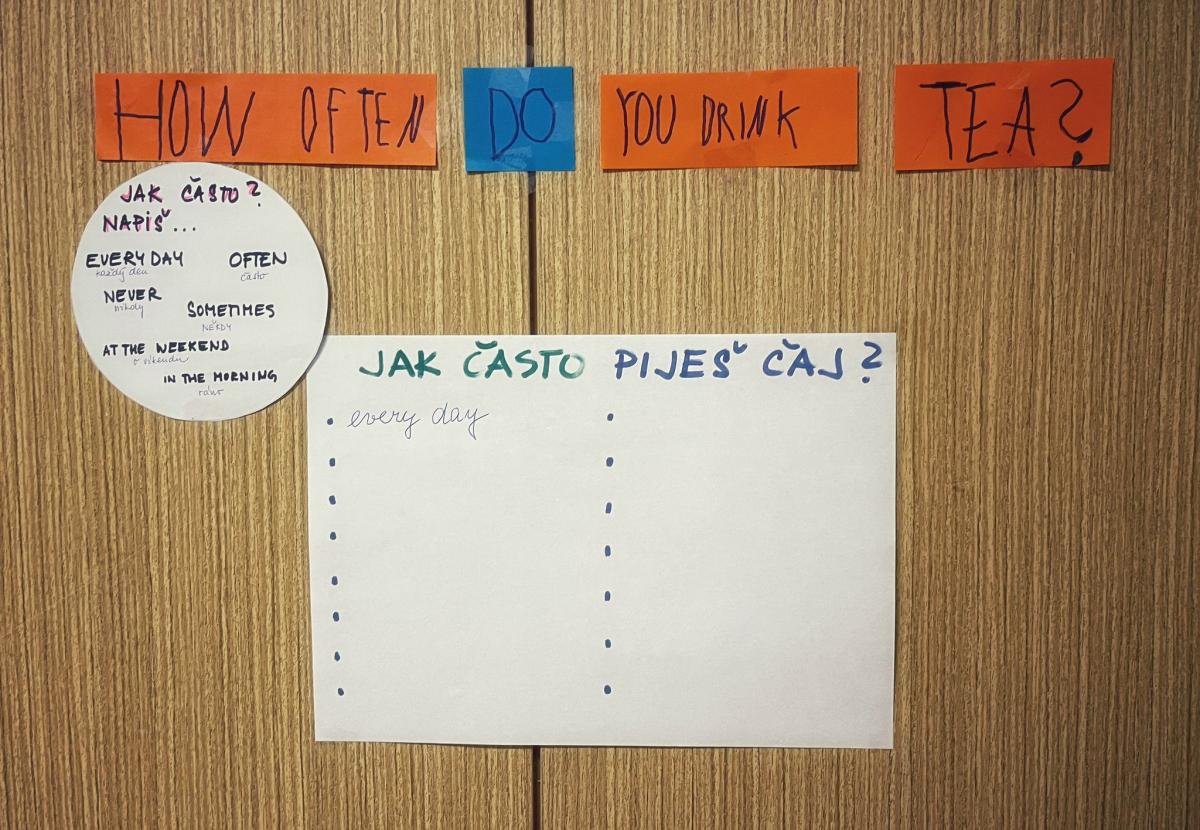 HOW OFTEN DO YOU DRINK TEA?
JAK ČASTO?
NAPIŠ...
EVERY DAY OFTEN
každý den často
NEVER
nikdy
SOMETIMES
NĚKDY
AT THE WEEKEND
o víkendu
IN THE MORNING
ráno
JAK ČASTO PIJEŠ ČAJ?
• every day